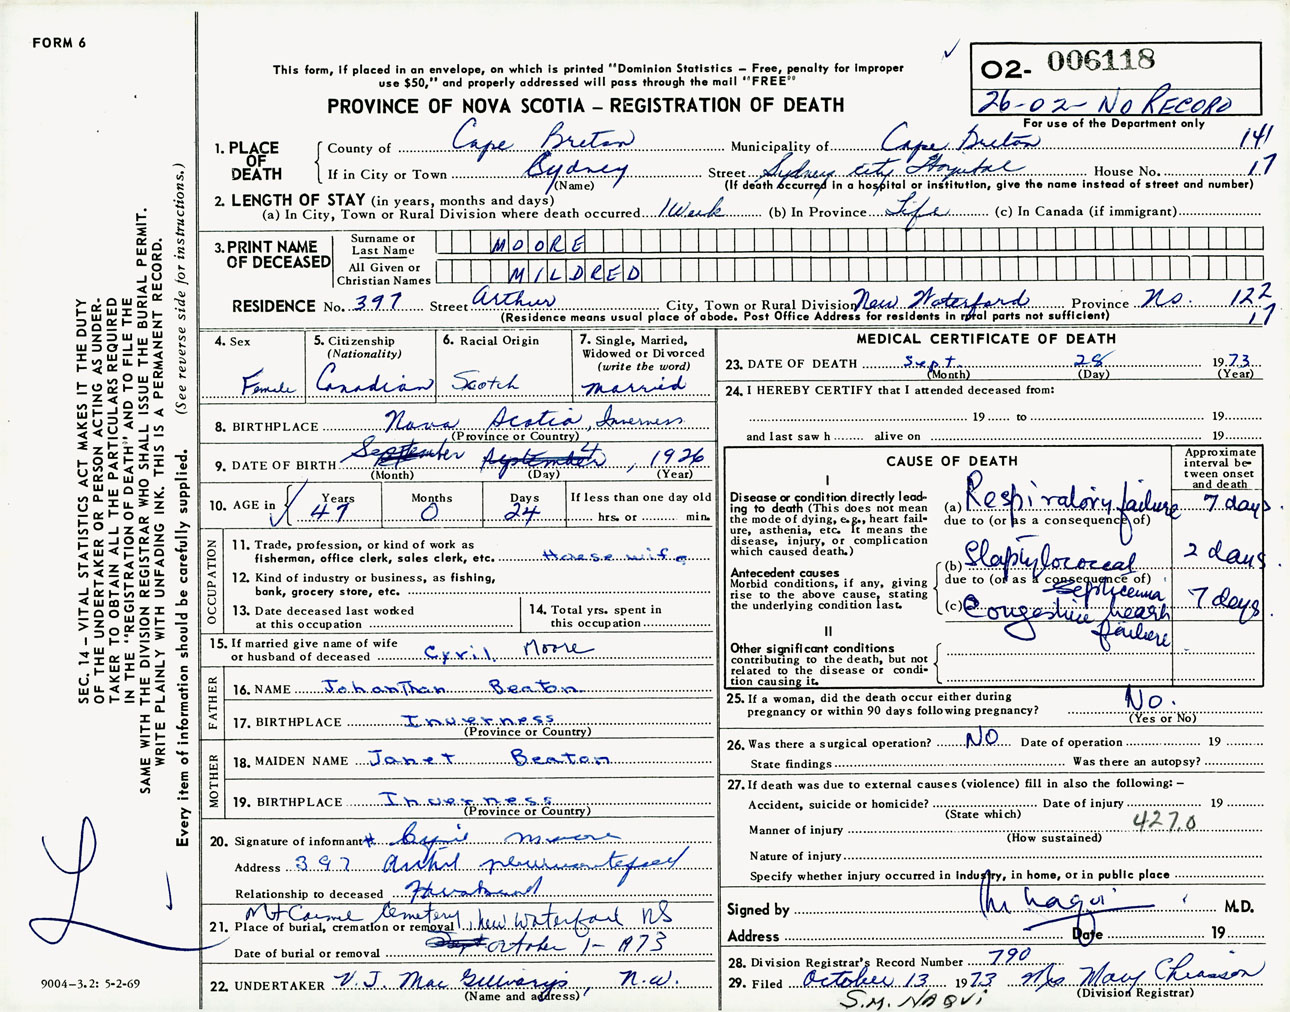 FORM 6
O2- 006118
26-02- No RECORD
For use of the Department only
This form, if placed in an envelope, on which is printed "Dominion Statistics – Free, penalty for improper
use $50," and properly addressed will pass through the mail "FREE"
PROVINCE OF NOVA SCOTIA – REGISTRATION OF DEATH
1. PLACE OF DEATH
County of Cape Breton Municipality of Cape Breton 141
If in City or Town Sydney Street Sydney City Hospital House No. 17
(Name) (If death occurred in a hospital or institution, give the name instead of street and number)
2. LENGTH OF STAY (in years, months and days)
(a) In City, Town or Rural Division where death occurred 1 Week (b) In Province Life (c) In Canada (if immigrant)
3. PRINT NAME OF DECEASED
Surname or Last Name MOORE
All Given or Christian Names MILDRED
RESIDENCE No. 397 Street Arthur City, Town or Rural Division New Waterford Province Ns. 122
(Residence means usual place of abode. Post Office Address for residents in rural parts not sufficient) 17
4. Sex Female
5. Citizenship (Nationality) Canadian
6. Racial Origin Scotch
7. Single, Married, Widowed or Divorced (write the word) Married
8. BIRTHPLACE Nova Scotia, Inverness
(Province or Country)
9. DATE OF BIRTH September 4, 1926
(Month) (Day) (Year)
10. AGE in Years 47 Months 0 Days 24 If less than one day old hrs. or min.
OCCUPATION
11. Trade, profession, or kind of work as
fisherman, office clerk, sales clerk, etc. Housewife
12. Kind of industry or business, as fishing,
bank, grocery store, etc.
13. Date deceased last worked
at this occupation
14. Total yrs. spent in
this occupation
15. If married give name of wife
or husband of deceased Cyril Moore
FATHER
16. NAME Johanthan Beaton
17. BIRTHPLACE Inverness
(Province or Country)
MOTHER
18. MAIDEN NAME Janet Beaton
19. BIRTHPLACE Inverness
(Province or Country)
20. Signature of informant Cyril Moore
Address 397
Relationship to deceased Husband
Mt Carmel Cemetery, New Waterford NS
21. Place of burial, cremation or removal
Date of burial or removal October 1- 1973
22. UNDERTAKER V. J. Mac Gillivrays, N.W.
(Name and address)
MEDICAL CERTIFICATE OF DEATH
23. DATE OF DEATH Sept. 28 1973
(Month) (Day) (Year)
24. I HEREBY CERTIFY that I attended deceased from:
19 to 19
and last saw h alive on 19
CAUSE OF DEATH
Approximate interval between onset and death
I
Disease or condition directly leading to death (This does not mean the mode of dying, e.g., heart failure, asthenia, etc. It means the disease, injury, or complication which caused death.)
(a) Respiratory failure 7 days
due to (or as a consequence of)
Antecedent causes
Morbid conditions, if any, giving rise to the above cause, stating the underlying condition last.
(b) Staphylococcal 2 days
due to (or as a consequence of)
Septicemia
(c) Congestive heart 7 days
failure
II
Other significant conditions
contributing to the death, but not related to the disease or condition causing it.
25. If a woman, did the death occur either during
pregnancy or within 90 days following pregnancy? No.
(Yes or No)
26. Was there a surgical operation? NO Date of operation 19
State findings Was there an autopsy?
27. If death was due to external causes (violence) fill in also the following: –
Accident, suicide or homicide? Date of injury 19
(State which)
Manner of injury 427.0
(How sustained)
Nature of injury
Specify whether injury occurred in industry, in home, or in public place
Signed by M Naqvi M.D.
Address Date 19
28. Division Registrar's Record Number 790
29. Filed October 13 1973 Mrs Mary Chiasson
(Division Registrar)
S.M. NAQVI
SEC. 14 – VITAL STATISTICS ACT MAKES IT THE DUTY
OF THE UNDERTAKER OR PERSON ACTING AS UNDER-
TAKER TO OBTAIN ALL THE PARTICULARS REQUIRED
IN THE "REGISTRATION OF DEATH" AND TO FILE THE
SAME WITH THE DIVISION REGISTRAR WHO SHALL ISSUE THE BURIAL PERMIT.
WRITE PLAINLY WITH UNFADING INK. THIS IS A PERMANENT RECORD.
Every item of information should be carefully supplied. (See reverse side for instructions.)
9004–3.2: 5-2-69